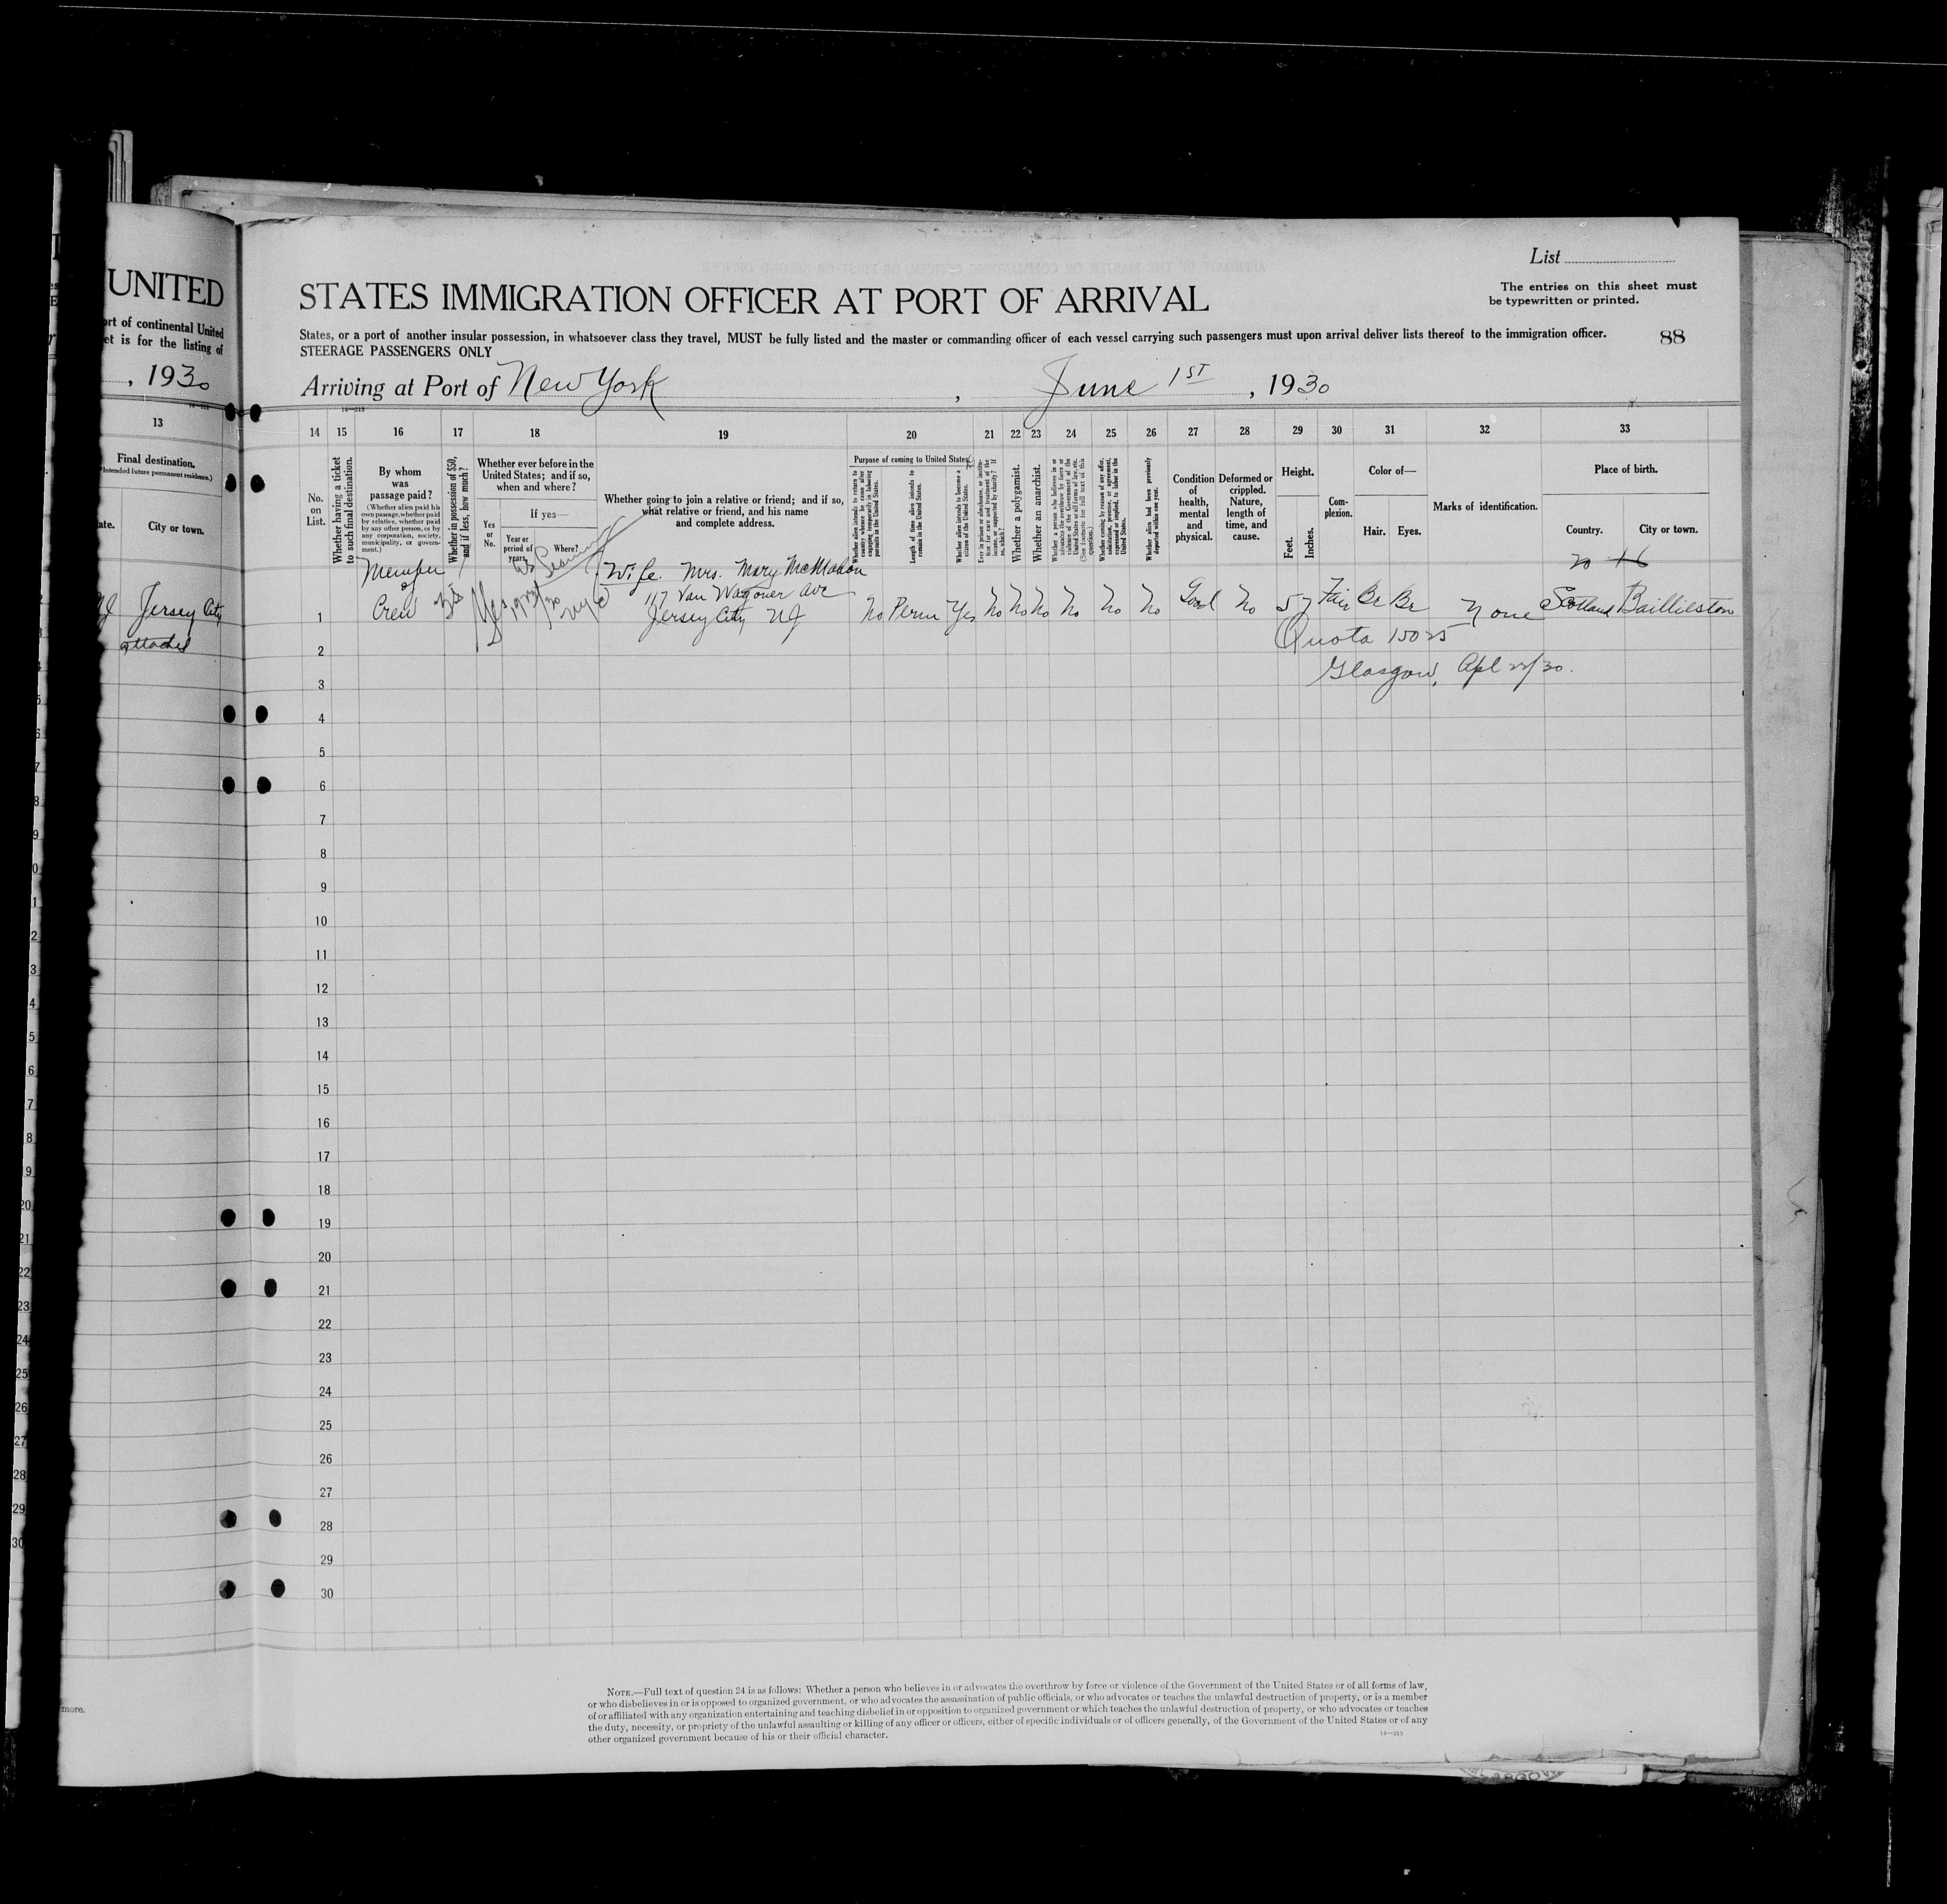 UNITED
rt of continental United
et is for the listing of
, 1930
13
Final destination.
Intended future permanent residence.)
ate.
City or town.
NJ Jersey City
attached
List
STATES IMMIGRATION OFFICER AT PORT OF ARRIVAL
The entries on this sheet must
be typewritten or printed.
States, or a port of another insular possession, in whatsoever class they travel, MUST be fully listed and the master or commanding officer of each vessel carrying such passengers must upon arrival deliver lists thereof to the immigration officer.
88
STEERAGE PASSENGERS ONLY
Arriving at Port of New York, June 1ST, 1930
14—213
14 15 16 17 18 19 20 21 22 23 24 25 26 27 28 29 30 31 32 33
No.
on
List.
Whether having a ticket
to such final destination.
By whom
was
passage paid?
(Whether alien paid his
own passage, whether paid
by relative, whether paid
by any other person, or by
any corporation, society,
municipality, or govern-
ment.)
Whether in possession of $50,
and if less, how much?
Whether ever before in the
United States; and if so,
when and where?
Yes
or
No.
If yes—
Year or
period of
years.
Where?
Whether going to join a relative or friend; and if so,
what relative or friend, and his name
and complete address.
Purpose of coming to United States.
Whether alien intends to return to
country whence he came after
engaging temporarily in laboring
pursuits in the United States.
Length of time alien intends to
remain in the United States.
Whether alien intends to become a
citizen of the United States.
Ever in prison or almshouse, or institu-
tion for care and treatment of the
insane, or supported by charity? If
so, which?
Whether a polygamist.
Whether an anarchist.
Whether a person who believes in or
advocates the overthrow by force or
violence of the Government of the
United States or all forms of law, etc.
(See footnote for full text of this
question.)
Whether coming by reason of any offer,
solicitation, promise, or agreement,
expressed or implied, to labor in the
United States.
Whether alien had been previously
deported within one year.
Condition
of
health,
mental
and
physical.
Deformed or
crippled.
Nature,
length of
time, and
cause.
Height.
Feet.
Inches.
Com-
plexion.
Color of—
Hair.
Eyes.
Marks of identification.
Place of birth.
Country.
City or town.
Member
of
Crew
Yes
as Seaman
Wife. Mrs. Mary McMahon
117 Van Wagoner Ave
Jersey City NJ
No Perm Yes No No No No No No Good No 5 7 Fair Br Br None Scotland Baillieston
Quota 15025
Glasgow, Apl 22/30.
1
2
3
4
5
6
7
8
9
10
11
12
13
14
15
16
17
18
19
20
21
22
23
24
25
26
27
28
29
30
more.
NOTE.—Full text of question 24 is as follows: Whether a person who believes in or advocates the overthrow by force or violence of the Government of the United States or of all forms of law,
or who disbelieves in or is opposed to organized government, or who advocates the assassination of public officials, or who advocates or teaches the unlawful destruction of property, or is a member
of or affiliated with any organization entertaining and teaching disbelief in or opposition to organized government or which teaches the unlawful destruction of property, or who advocates or teaches
the duty, necessity, or propriety of the unlawful assaulting or killing of any officer or officers, either of specific individuals or of officers generally, of the Government of the United States or of any
other organized government because of his or their official character.
14—213